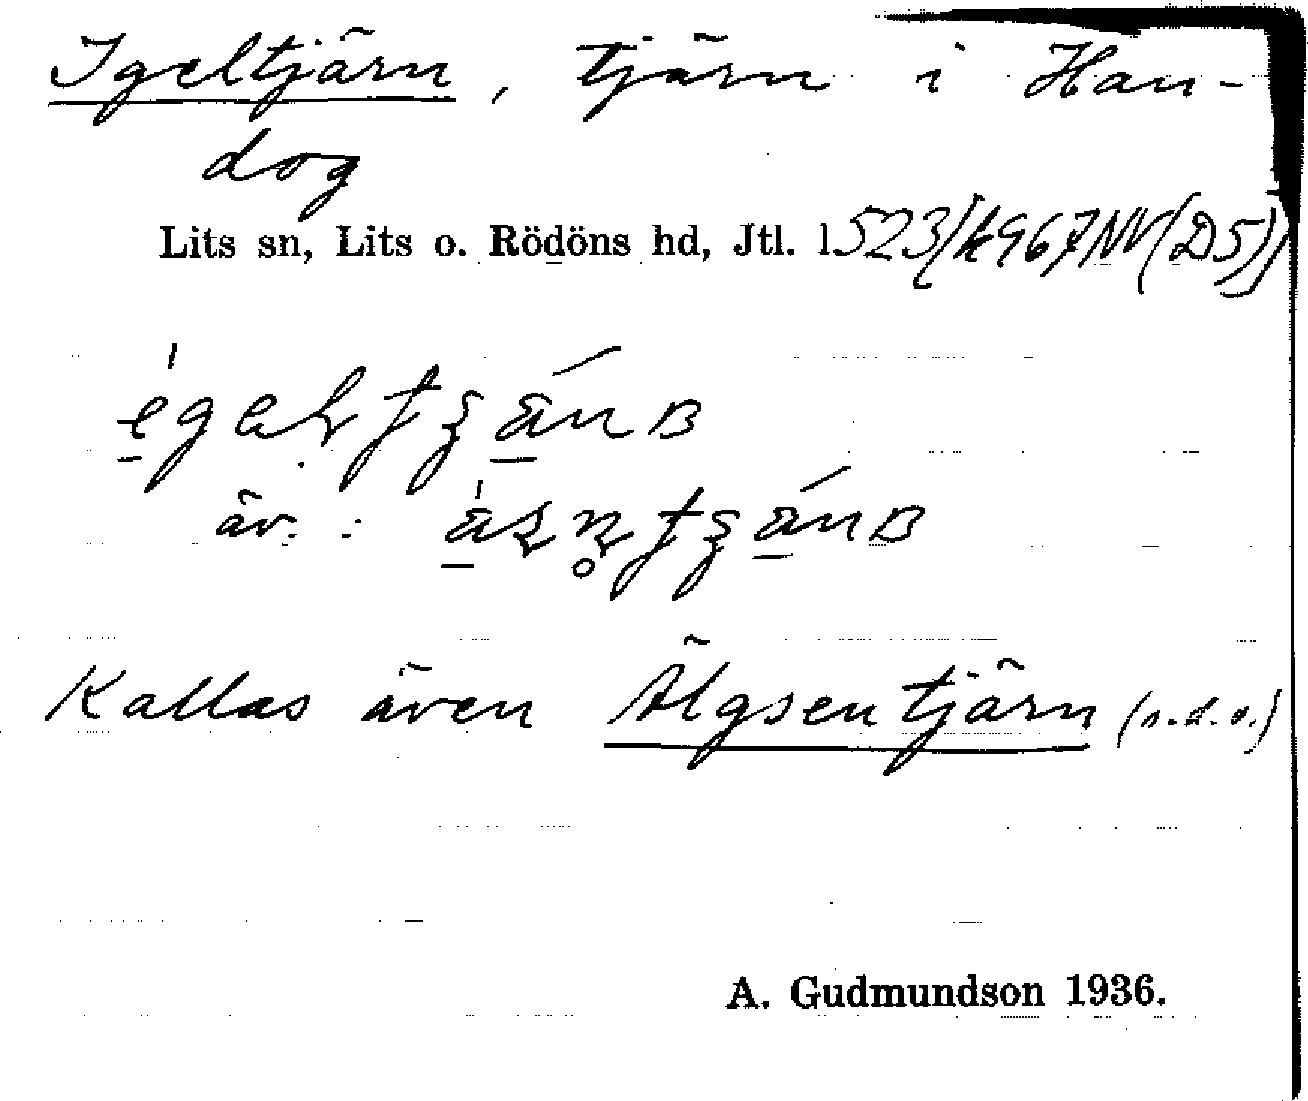 Igeltjärn, tjärn i Han-
dog
Lits sn, Lits o. Rödöns hd, Jtl. 1523/k967NV(D5))
äv. :
Kallas även Älgsentjärn (s.d.o.)
A. Gudmundson 1936.